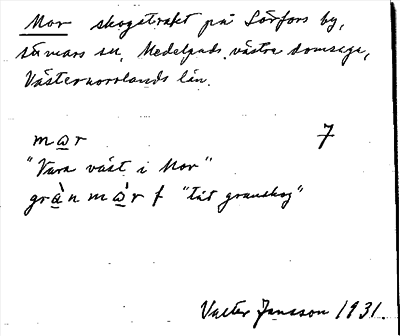 Mor skogstrakt på Sörfors by,
Stöde sn, Medelpads västra domsaga,
Västernorrlands län.
mar 7
"Vara väst i Mor"
grànmàr f "tät granskog"
Valter Jansson 1931.